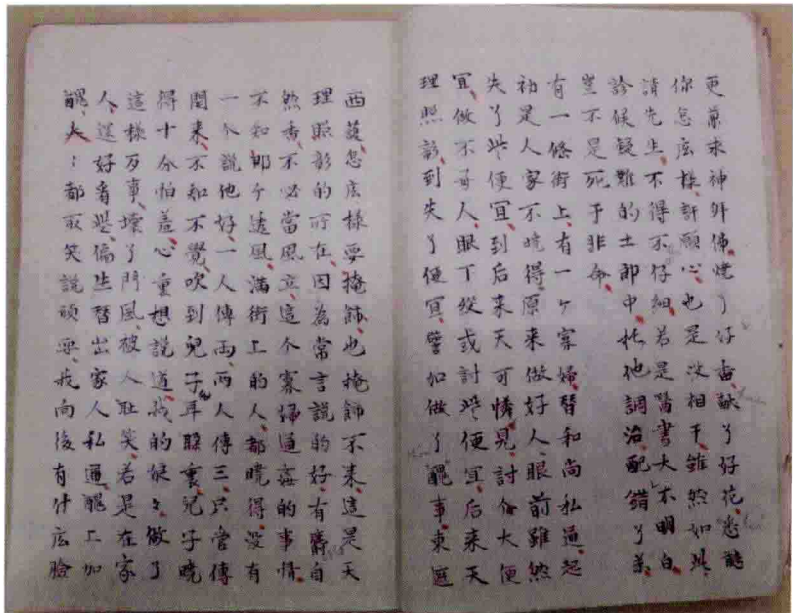 更蕳求神外佛燒了仔香献了好花悉聽
你怎庅樣許願心也是沒相干雖然如此
請先生不得不仔細若是醫書大不明白
診候疑難的土郎中托他調治配錯了葯
豈不是死于非命
有一條街上有一ケ寡婦替和尚私通起
初是人家不曉得原来做好人眼前雖然
失了些便宜到后来天可憐見討个大便
宜做不哥人眼下縱或討些便宜后来天
理照彰到失了便宜譬如做了醜事東遮
西蓋怎庅樣要掩飾也掩飾不来這是天
理照彰的所在因為常言說的好有麝自
然香不必當風立這个寡婦通姦的事情
不知那ケ透風滿街上的人都曉得没有
一个說他好一人傳両両人傳三只管傳
開来不知不覺吹到兒子耳躲裏兒子曉
得十分怕羞心重想說道我的娘々做了
這樣歹事壞了門風被人耻笑若是在家
人還好看些偏生替出家人私通醜上加
醜人〻都取笑說頑耍我向後有什庅臉